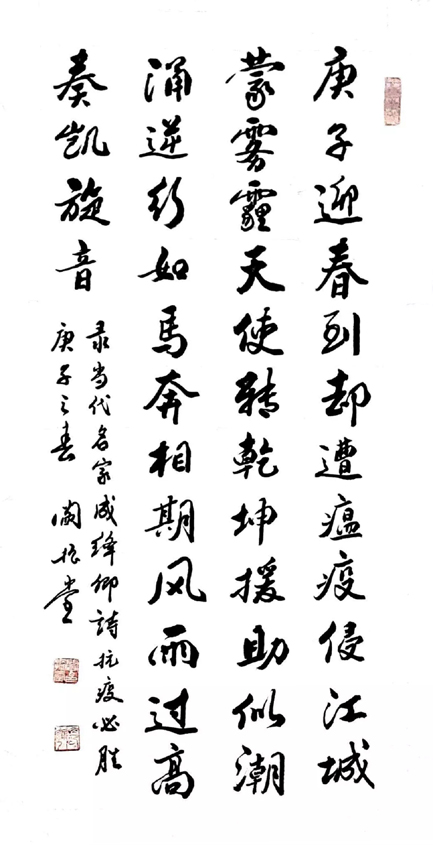 庚子迎春到却遭瘟疫侵江城
蒙雾霾天使轉乾坤援助似潮
涌逆行如馬奔相期风雨过高
奏凯旋音
录当代名家成绛卿詩抗疫必胜
庚子之春 阚振堂